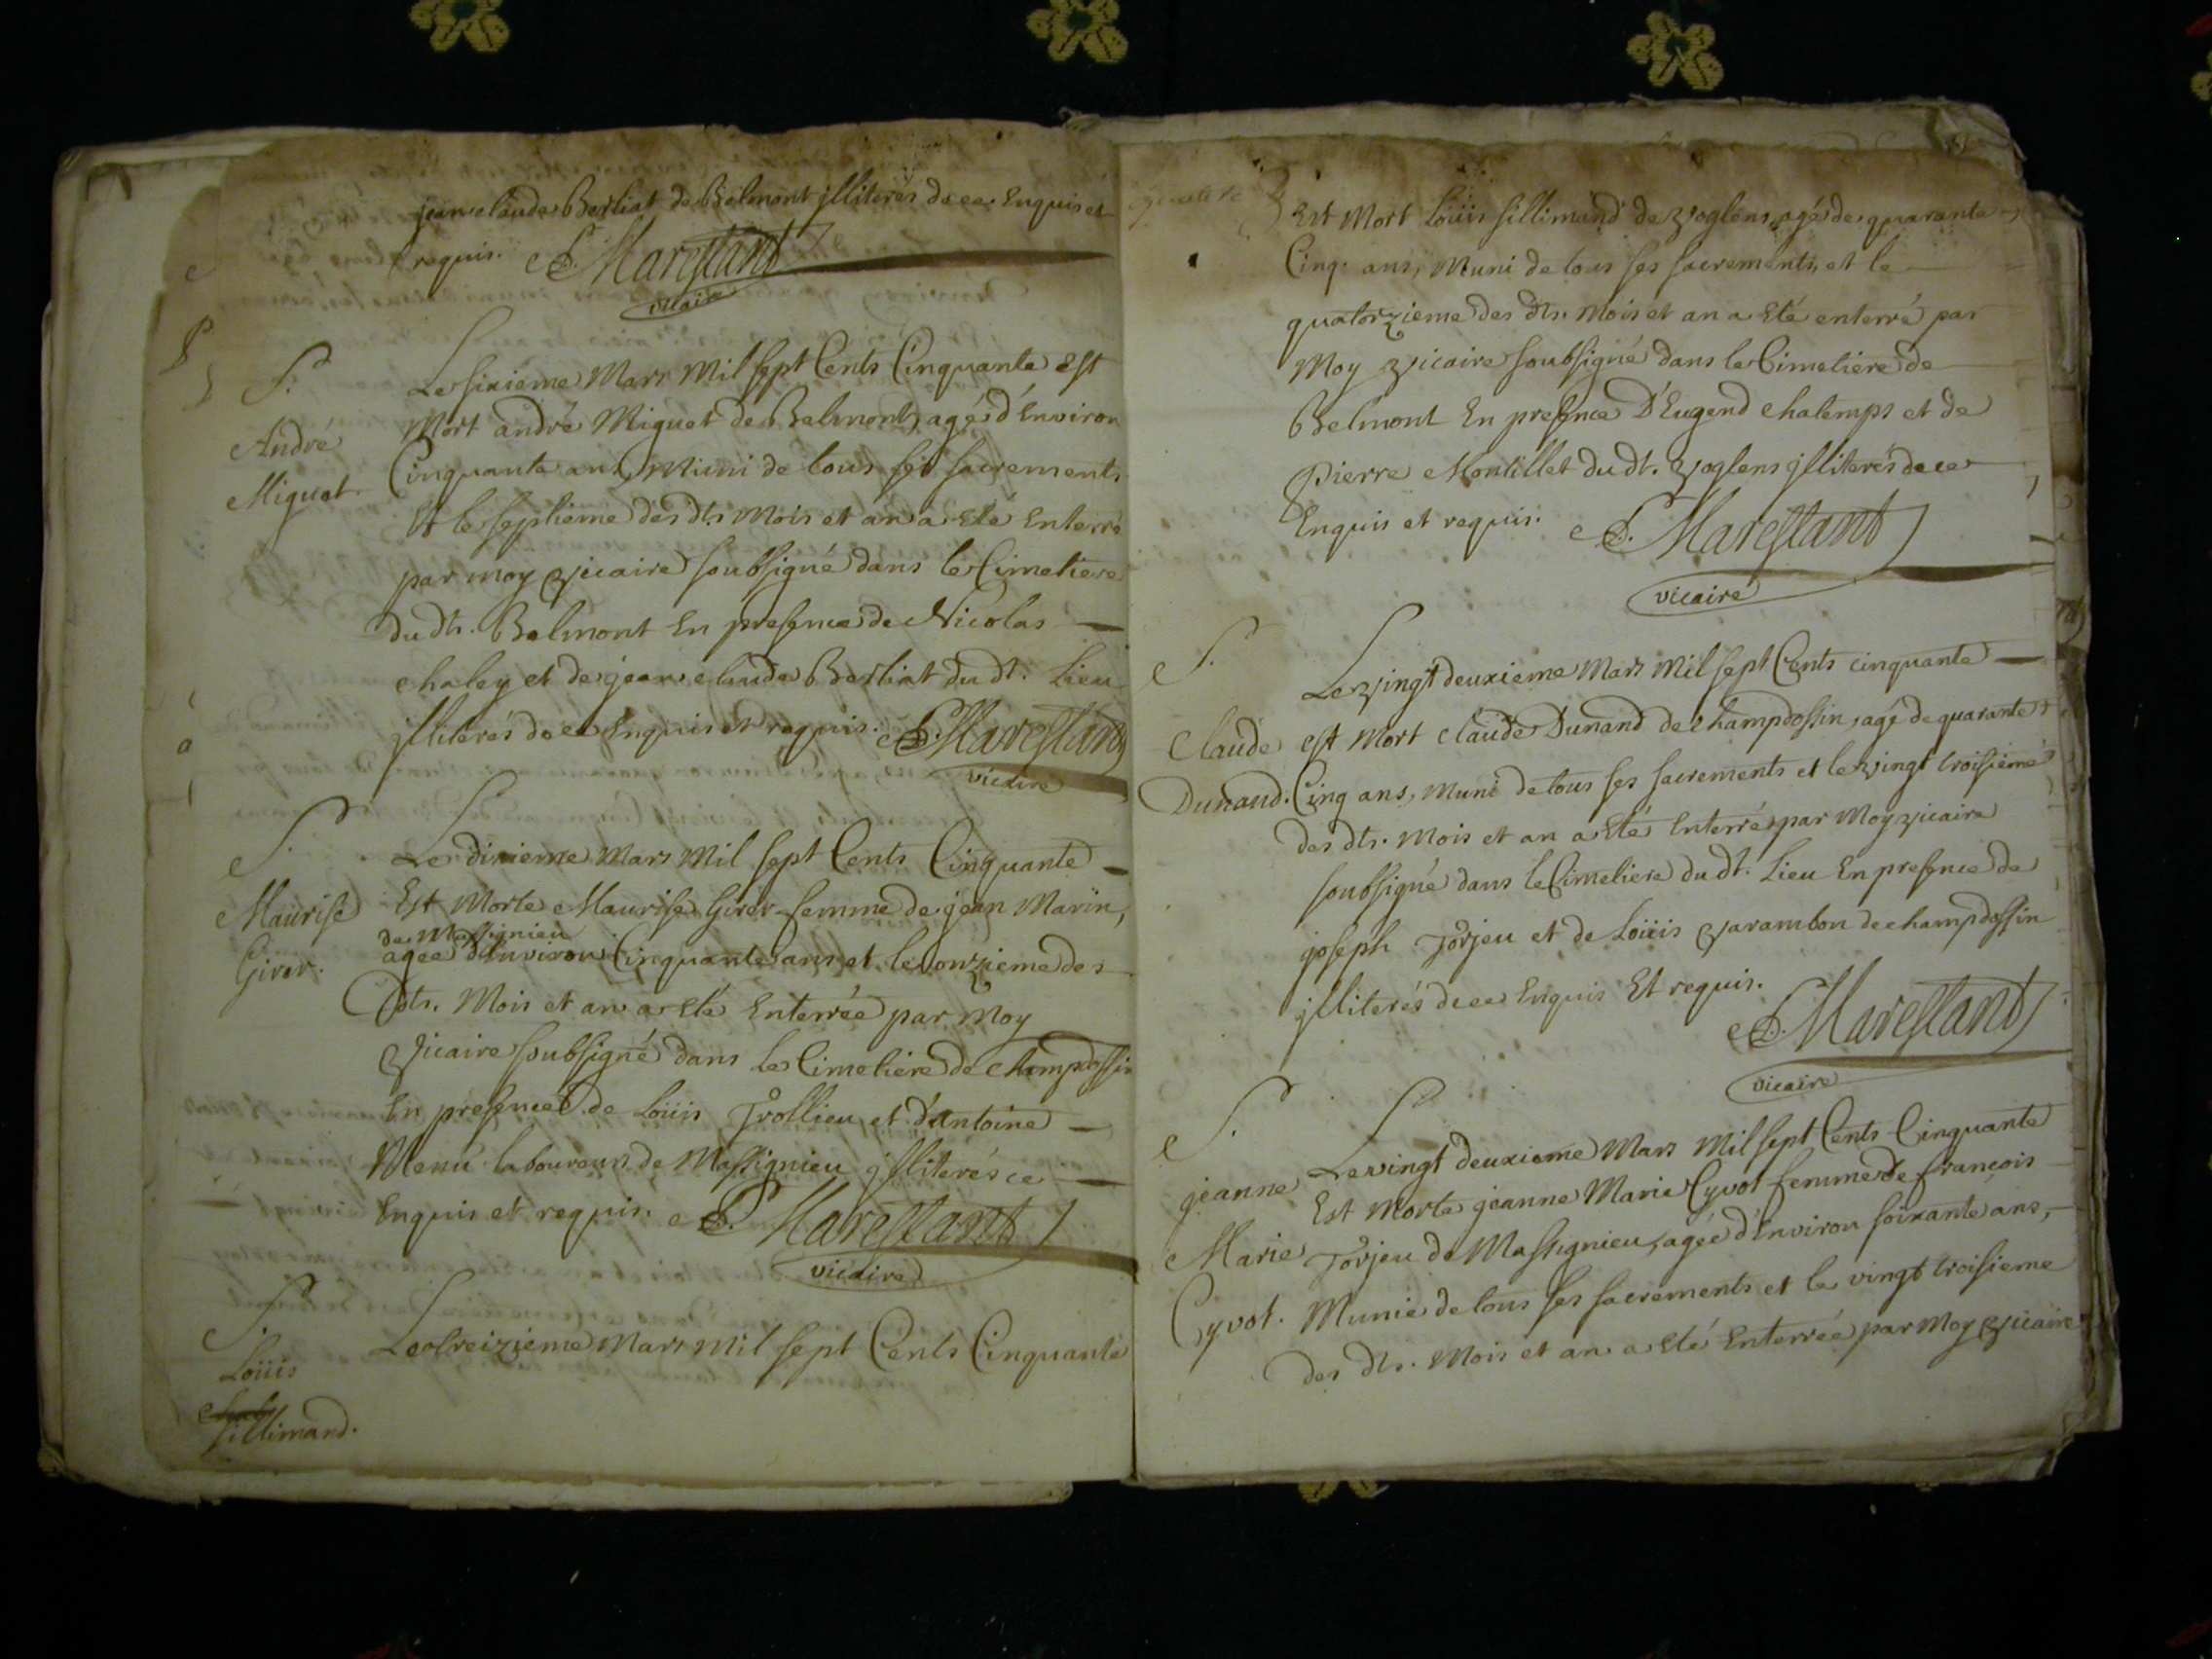 jean claude Berliat de Belmont jlliterés de ce Enquis et
requis. Marestant
vicaire
S.
André
Miguet.
Le sixieme Mars Mil sept Cents Cinquante est
Mort andré Miguet de Belmont, agé d'Environ
Cinquante ans, Muni de tous ses sacrements
Et le septieme des dts. Mois et an a eté Enterré
par moy vicaire soubsigné dans le Cimetiere
du dt. Belmont En presence de Nicolas
chaley et de jean claude Berliat du dt. Lieu
jlliterés de ce Enquis et requis. Marestant
vicaire
S.
Maurise
Girer.
Le dixieme Mars Mil sept Cents Cinquante
Est Morte Maurise Girer femme de jean Marin,
de Massignieu
agée d'Environ Cinquante ans et le onzieme des
dts. Mois et an a eté Enterrée par Moy
vicaire soubsigné dans le Cimetiere de champdossin
En presence de Loüis Trollieu et d'antoine
Menu laboureurs de Massignieu jlliterés ce
Enquis et requis. Marestant
vicaire
S.
Loüis
sillimand.
Le treizieme Mars Mil sept Cents Cinquante
Est Mort Loüis sillimand de voglens, agé de quarante
Cinq ans, Muni de tous ses sacrements, et le
quatorzieme des dts. Mois et an a eté enterré par
Moy vicaire soubsigné dans le Cimetiere de
Belmont En presence D'Eugend chatemps et de
Pierre Montillet du dt. voglens jlliterés de ce
Enquis et requis. Marestant
vicaire
S.
Claude
Dunand.
Le vingt deuxieme Mars Mil sept Cents cinquante
est Mort claude Dunand de champdossin, agé de quarante
Cinq ans, Muni de tous ses sacrements et le vingt troisieme
des dts. Mois et an a eté Enterré par Moy vicaire
soubsigné dans le Cimetiere du dt. Lieu En presence de
joseph Torjeu et de Loüis varambon de champdossin
jlliterés de ce Enquis Et requis.
Marestant
vicaire
S.
jeanne
Marie
Cyvot.
Le vingt deuxieme Mars Mil sept Cents Cinquante
Est Morte jeanne Marie Cyvot femme de françois
Torjeu de Massignieu, agée d'Environ soixante ans,
Munie de tous ses sacrements et le vingt troisieme
des dts. Mois et an a eté Enterrée par Moy vicaire